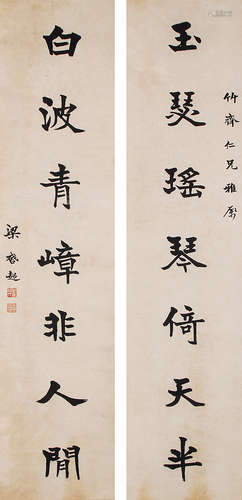 竹齋仁兄雅屬
玉琴瑤琴倚天半
白波青嶂非人間
梁啟超